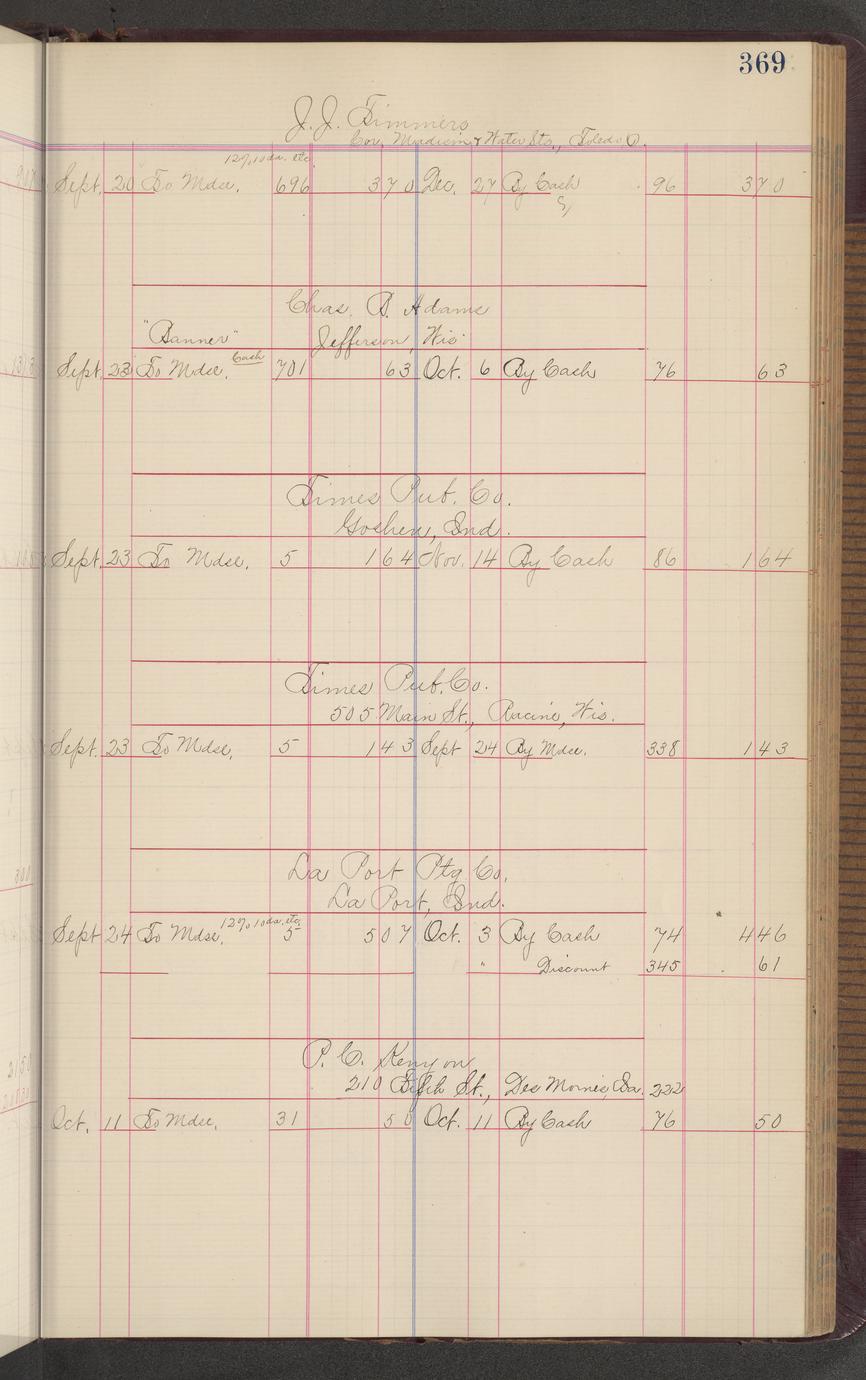 369
J. J. Timmers
Cor. Madison & Water Sts., Toledo O.
12% 10 da. etc.
Sept. 20 To Mdse. 696 3 70 Dec. 27 By Cash 96 3 70
Chas. B. Adams
"Banner" Jefferson, Wis.
Sept. 23 To Mdse. Cash 701 63 Oct. 6 By Cash 76 63
Times Pub. Co.
Goshen, Ind.
Sept. 23 To Mdse. 5 1 64 Nov. 14 By Cash 86 1 64
Times Pub. Co.
505 Main St., Racine, Wis.
Sept. 23 To Mdse. 5 1 43 Sept 24 By Mdse. 338 1 43
La Port Ptg Co.
La Port, Ind.
Sept 24 To Mdse. 12% 10 da. etc. 5 5 07 Oct. 3 By Cash 74 4 46
" Discount 345 61
P. C. Kenyon
210 Fifth St., Des Moines, Ia. 222
Oct. 11 To Mdse. 31 50 Oct. 11 By Cash 76 50